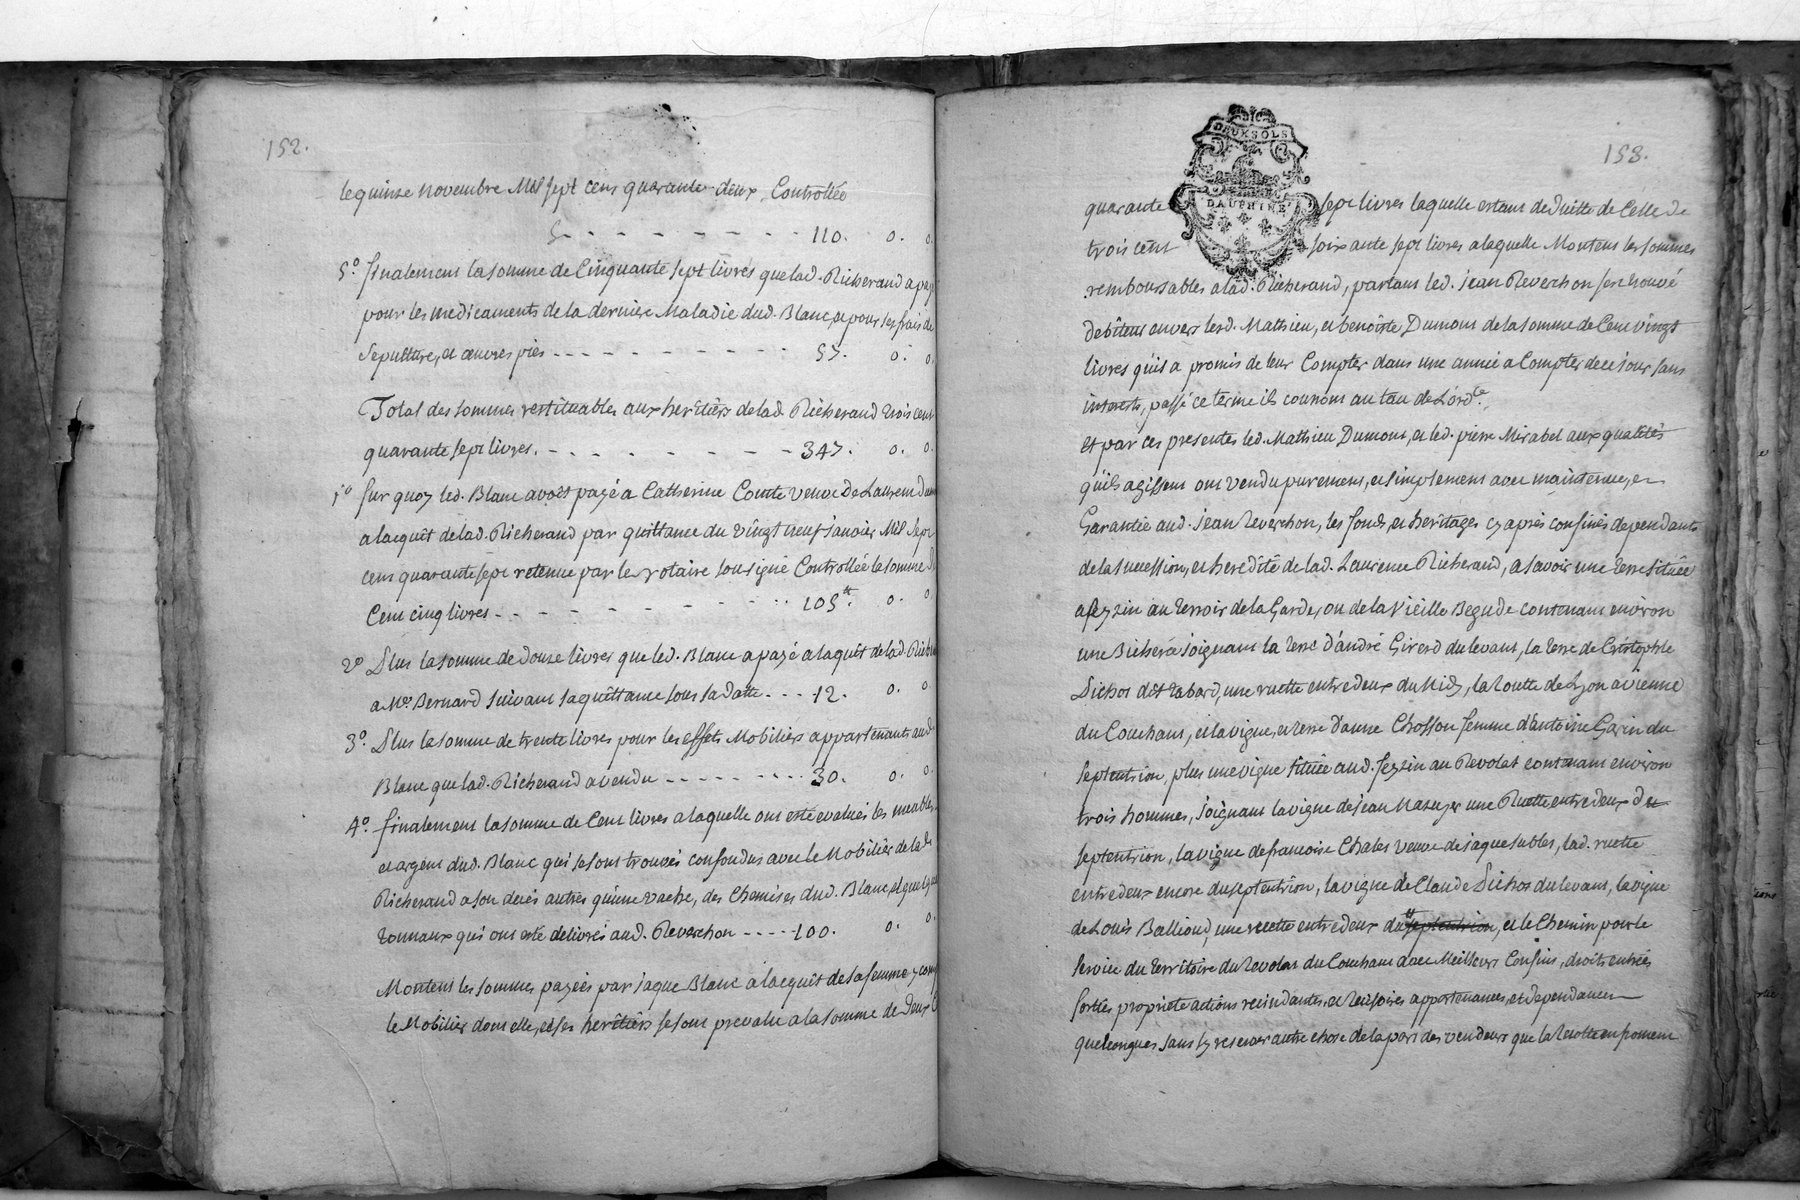 152.
le quinze novembre Mil sept cens quarante deux, Controllée
110. 0. 0
5.º finalement la somme de Cinquante sept livres que lad. Richerand a payé
pour les medicaments de la derniere Maladie dud. Blanc, et pour ses frais de
sepulture, et œuvres pies - - - - 57. 0. 0.
Total des sommes restituables aux heritiers de lad. Richerand trois cent
quarante sept livres. - - - - 347. 0. 0.
1º sur quoy led. Blanc avoit payé a Catherine Comte veuve De Laurent Dumont
a lacquit de lad. Richerand par quittance du vingt neuf janvier Mil Sept
cens quarante sept retenue par le notaire soussigné Controllée la somme de
Cent cinq livres - - - - 105tt. 0. 0
2º Plus la somme de douze livres que led. Blanc a payé a laquit de lad. Richerand
a Me. Bernard suivant sa quittance sous sa datte - - - 12. 0. 0
3º. Plus la somme de trente livres pour les effets Mobiliers appartenants aud.
Blanc que lad. Richerand a vendu - - - - 30. 0. 0.
4º. finalement la somme de Cent livres a laquelle ont esté evalués les meubles,
et argent dud. Blanc qui se sont trouvés confondus avec le Mobilier de lad.
Richerand a son décés autres qu'une vache, des Chemises dud. Blanc, et quelques
tonneaux qui ont esté delivrés aud. Reverchon - - - - 100. 0. 0.
Montent les sommes payées par jaque Blanc a lacquit de sa femme y compris
le Mobilier dont elle, et ses heritiers se sont prevalu a la somme de Deux Cent
153.
DEUX SOLS
DAUPHINE
quarante sept livres laquelle estant deduitte de Celle de
trois cent soixante sept livres a laquelle Montent les sommes
remboursables a lad. Richerand, partant led. jean Reverchon s'est trouvé
debiteur envers lesd. Mathieu, et benoiste Dumont de la somme de Cent vingt
livres qu'il a promis de leur Compter dans une année a Compter de ce jour sans
interests, passé ce terme ils courront au tau de L'ordce.
et par ces presentes led. Mathieu Dumont, et led. pierre Mirabel aux qualités
qu'ils agissent ont vendu purement, et simplement avec maintenue, et
Garantie aud. jean Reverchon, les fonds, et heritages cy aprés confinés dependants
de la succession, et heredité de lad. Laurence Richerand, a savoir une terre située
a feyzin au terroir de la Garde, ou de la Vieille Begude contenant environ
une Bicherée joignant la terre d'andré Girerd du levant, la terre de Cristophle
Pichos dit tabard, une ruette entredeux du Midy, la Routte de Lyon a vienne
du Couchant, et la vigne, et terre d'anne Chosson femme d'antoine Garin du
septentrion, plus une vigne située aud. feyzin au Revolat contenant environ
trois hommes, joignant la vigne de jean Mazuyer une Ruette entredeux du
septentrion, la vigne de francoise Chales veuve de jaque sables, lad. ruette
entredeux encore du septentrion, la vigne de Claude Pichos du levant, la vigne
de Louis Balliond, une ruette entredeux du septentrion, et le Chemin pour le
service du territoire du Revolat du Couchant avec Meilleurs Confins, droits entrées
sorties proprieté actions recindantes, et recisoires appartenances, et dependances
quelconques sans s'y reserver autre chose de la part des vendeurs que la Recolte en froment